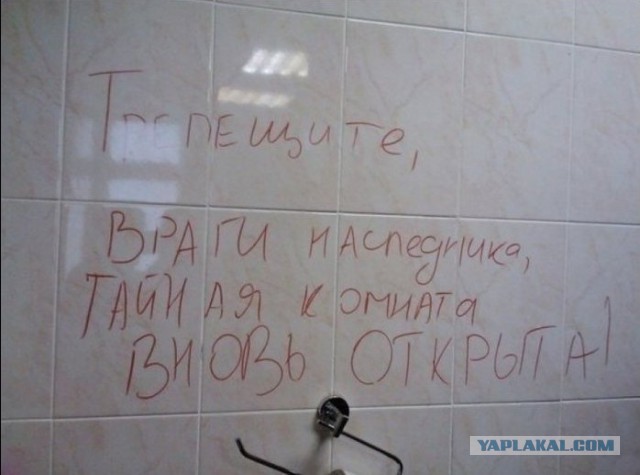 Трепещите,
ВРАГИ наследника,
ТАЙНАЯ комната
ВНОВЬ ОТКРЫТА!
YAPLAKAL.COM